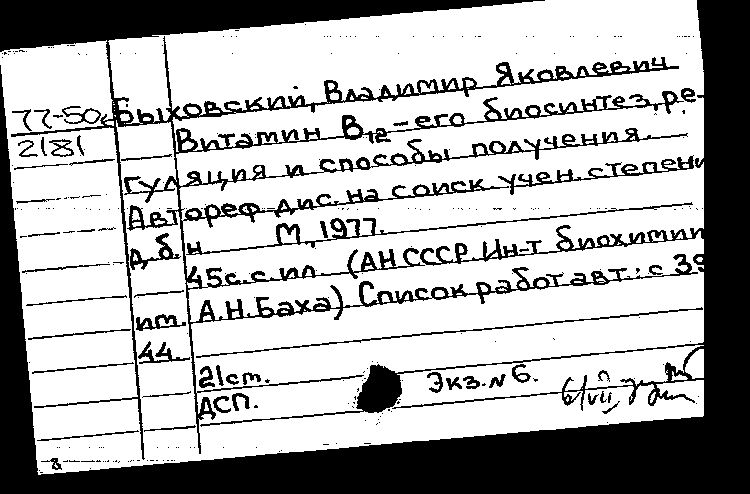 77-50с Быховский, Владимир Яковлевич
2181 Витамин В12-его биосинтез, ре-
гуляция и способы получения.
Автореф. дис. на соиск. учен. степени
д. б. н. М., 1977.
45с. с ил. (АН СССР. Ин-т биохимии
им. А.Н. Баха) Список работ авт.: с 39
44.
21ст.
ДСП. Экз. N 6.